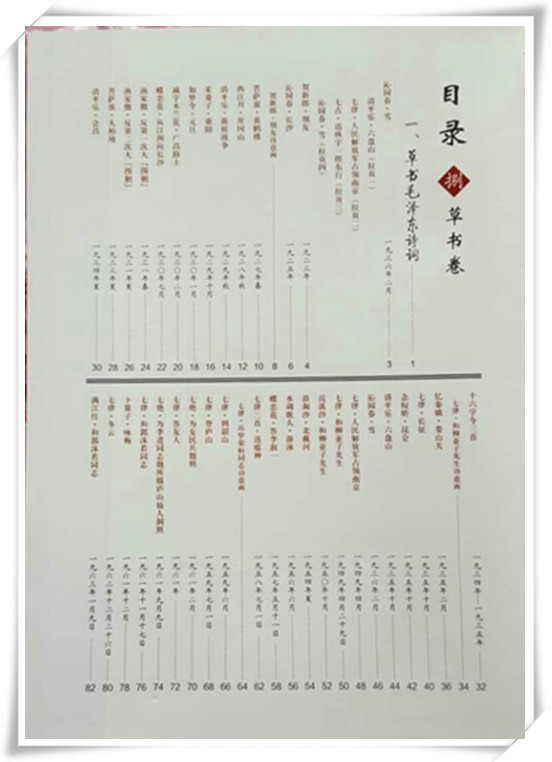 目录 捌 草书卷
一、草书毛泽东诗词 1
沁园春·雪 一九三六年二月 3
清平乐·六盘山（拉页一）
七律·人民解放军占领南京（拉页二）
七古·送纵宇一郎东行（拉页三）
沁园春·雪（拉页四）
贺新郎·别友 一九二三年 4
沁园春·长沙 一九二五年 6
贺新郎·别友诗意画 8
菩萨蛮·黄鹤楼 一九二七年春 10
西江月·井冈山 一九二八年秋 12
清平乐·蒋桂战争 一九二九年秋 14
采桑子·重阳 一九二九年十月 16
如梦令·元旦 一九三〇年一月 18
减字木兰花·广昌路上 一九三〇年二月 20
蝶恋花·从汀洲向长沙 一九三〇年七月 22
渔家傲·反第一次大「围剿」 一九三一年春 24
渔家傲·反第二次大「围剿」 一九三一年夏 26
菩萨蛮·大柏地 一九三三年夏 28
清平乐·会昌 一九三四年夏 30
十六字令三首 一九三四—一九三五年 32
七律·和柳亚子先生诗意画 34
忆秦娥·娄山关 一九三五年二月 36
七律·长征 一九三五年十月 40
念奴娇·昆仑 一九三五年十月 42
清平乐·六盘山 一九三五年十月 44
沁园春·雪 一九三六年二月 46
七律·人民解放军占领南京 一九四九年四月 48
七律·和柳亚子先生 一九四九年四月二十九日 50
浣溪沙·和柳亚子先生 一九五〇年十月 52
浪淘沙·北戴河 一九五四年夏 54
水调歌头·游泳 一九五六年六月 56
蝶恋花·答李淑一 一九五七年五月十一日 58
七律二首·送瘟神 一九五八年七月一日 62
64
七律·到韶山 一九五九年六月 66
七律·登庐山 一九五九年七月一日 68
七绝·为女民兵题照 一九六一年二月 70
七律·答友人 一九六一年 72
七绝·为李进同志题所摄庐山仙人洞照 一九六一年九月九日 74
七律·和郭沫若同志 一九六一年十一月十七日 76
卜算子·咏梅 一九六一年十二月 78
七律·冬云 一九六二年十二月二十六日 80
满江红·和郭沫若同志 一九六三年一月九日 82